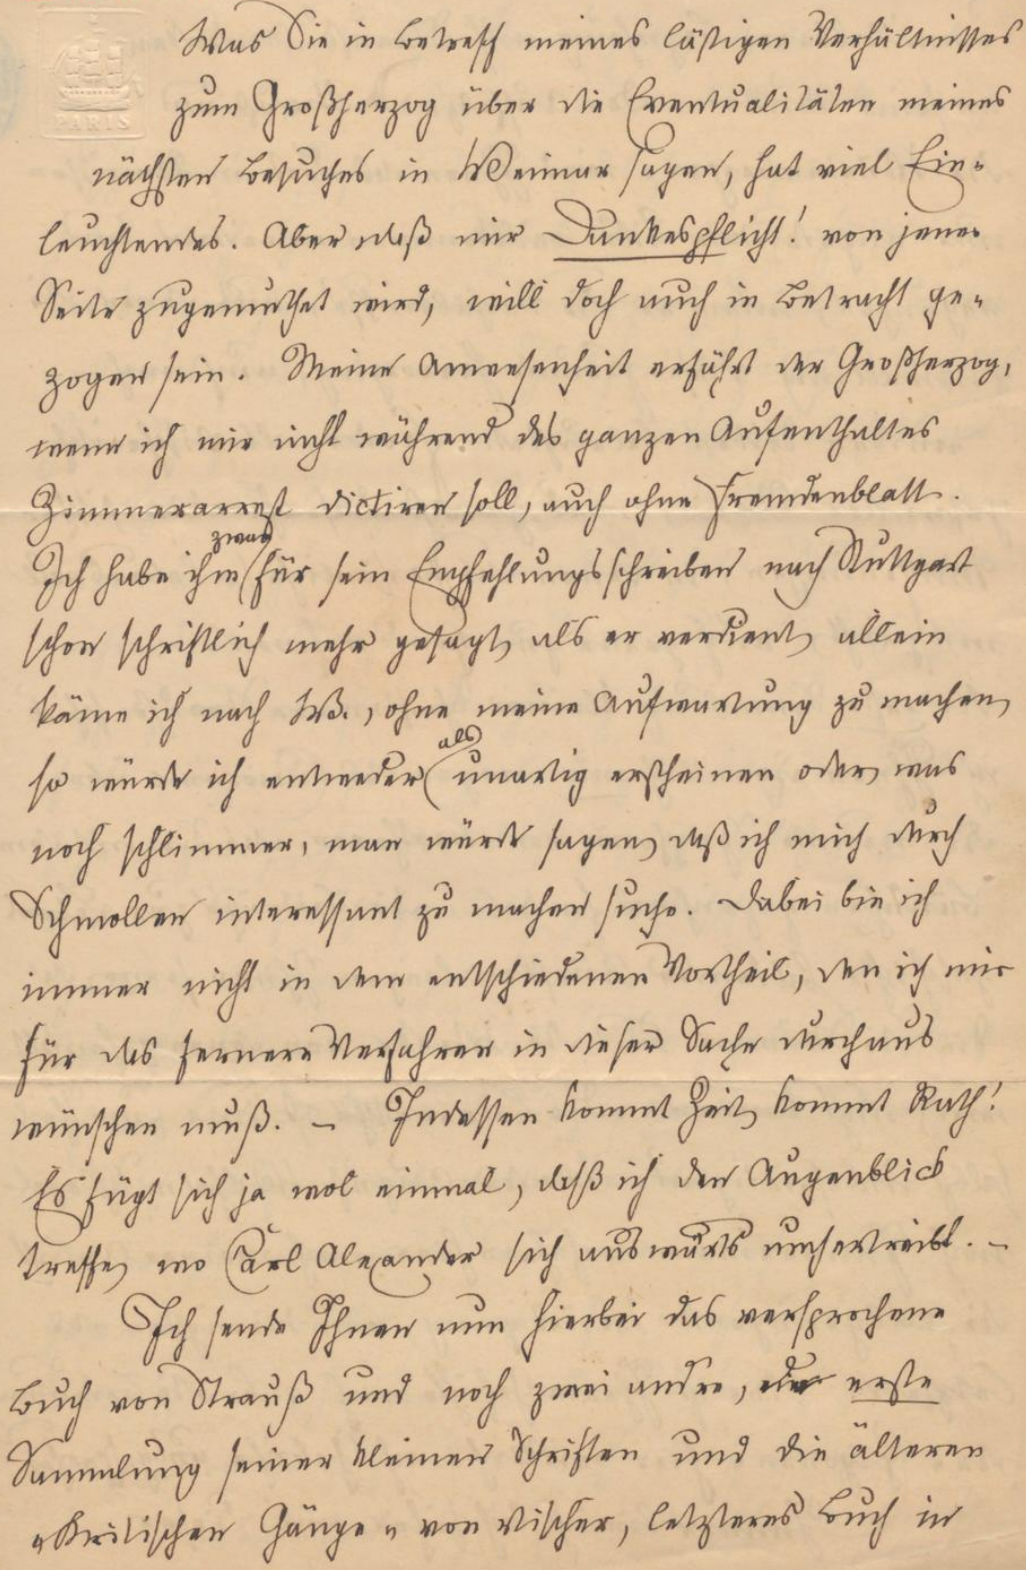 PARIS
Was Sie in Betreff meines lästigen Verhältnisses
zum Großherzog über die Eventualitäten meines
nächsten Besuches in Weimar sagen, hat viel Ein-
leuchtendes. Aber daß mir Dankespflicht! von jener
Seite zugemuthet wird, will doch auch in Betracht ge-
zogen sein. Meine Anwesenheit erfährt der Großherzog,
wenn ich mir nicht während des ganzen Aufenthaltes
Zimmerarrest dictiren soll, auch ohne Fremdenblatt.
zwar
Ich habe ihm für sein Empfehlungsschreiben nach Stuttgart
schon schriftlich mehr gesagt, als er verdient, allein
käme ich nach W., ohne meine Aufwartung zu machen,
als
so würde ich entweder unartig erscheinen oder, was
noch schlimmer, man würde sagen, daß ich mich durch
Schmollen interessant zu machen suche. Dabei bin ich
immer nicht in dem entschiedenen Vortheil, den ich mir
für das fernere Verfahren in dieser Sache durchaus
wünschen muß. – Indessen kommt Zeit, kommt Rath!
Es fügt sich ja wol einmal, daß ich den Augenblick
treffe, wo Carl Alexander sich auswärts umhertreibt. –
Ich sende Ihnen nun hierbei das versprochene
Buch von Strauß und noch zwei andre, die erste
Sammlung seiner kleinen Schriften und die älteren
„Kritischen Gänge" von Vischer, letzteres Buch in